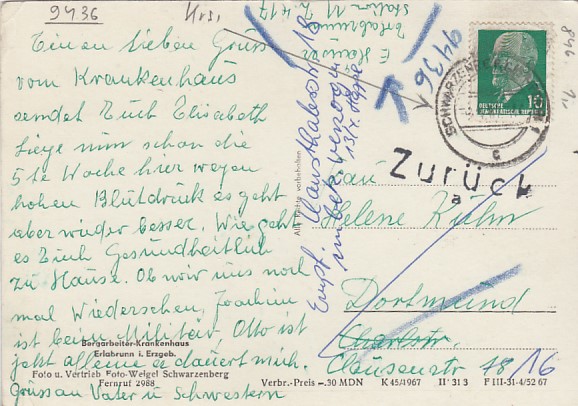 9436
Krs.
Einen lieben Gruss
vom Krankenhaus
sendet Euch Elisabeth
Liege nun schon die
5te Woche hier wegen
hohen Blutdruck es geht
aber wieder besser. Wie geht
es Euch Gesundheitlich
zu Hause. Ob wir uns noch
mal Wiedersehen, Joachim
ist beim Militär, Otto ist
jetzt alleine er dauert mich.
Gruss an Vater u Schwestern
Bergarbeiter-Krankenhaus
Erlabrunn i. Erzgeb.
Foto u. Vertrieb Foto-Weigel Schwarzenberg
Fernruf 2988
Verbr.-Preis —.30 MDN K 45/1967 II 31 3 F III-31-4/52 67
Alle Rechte vorbehalten
E.
Erlabrunn
Station
9436
Ernst
unbek. verzogen
SCHWARZENBERG
c
DEUTSCHE
DEMOKRATISCHE REPUBLIK
10
846
Zurück
a
Frau
Helene Kühn
Dortmund
Clausenstr 78/16